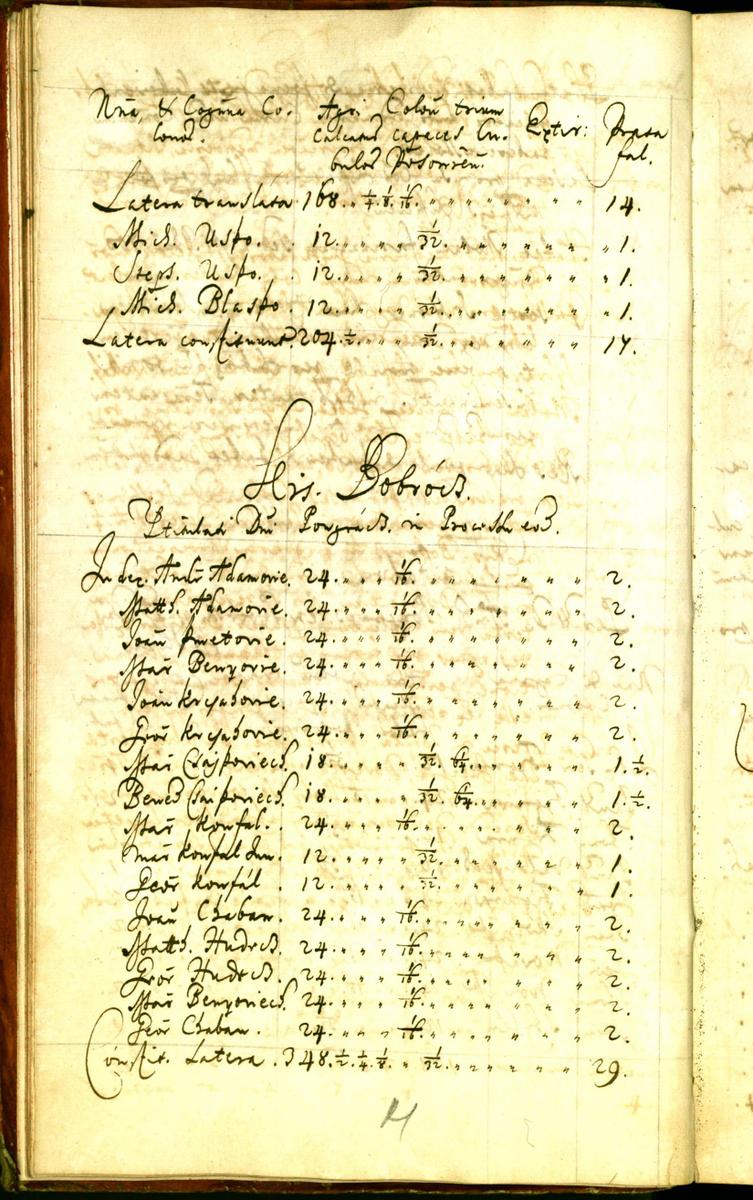 Nna, & Cognna Co-
lonor.
Agri Colon trium
calcatur capaces Cu-
bulos Posonien.
Extir:
Prata
fal.
Latera translata 168. 1/4. 1/8. 1/16. 14.
Mich. Uspo. 12. 1/32. 1.
Steps. Uspo. 12. 1/32. 1.
Mich. Blaspo. 12. 1/32. 1.
Latera constituunt. 204. 1/2. 1/32. 17.
His. Bobrócz.
Titulati Dni Pongrácz in Processu eod.
Judex. Andr Adamovie. 24. 1/16. 2.
Matth. Adamovie. 24. 1/16. 2.
Joan 24. 1/16. 2.
Mar Benyovie. 24. 1/16. 2.
Joan Kryahovie. 24. 1/16. 2.
Geor Kryahovie. 24. 1/16. 2.
Mar Csajpoviech. 18. 1/32. 1/64. 1. 1/2.
Bened Csajpoviech. 18. 1/32. 1/64. 1. 1/2.
Mar Konfal. 24. 1/16. 2.
Mar Konfal Jun. 12. 1/32. 1.
Geor Konfál. 12. 1/32. 1.
Joan Chaban. 24. 1/16. 2.
Matth. Hudecz. 24. 1/16. 2.
Geor Hudecz. 24. 1/16. 2.
Mar Benyoviech. 24. 1/16. 2.
Geor Chaban. 24. 1/16. 2.
Constit. Latera. 348. 1/2. 1/4. 1/8. 1/32. 29.